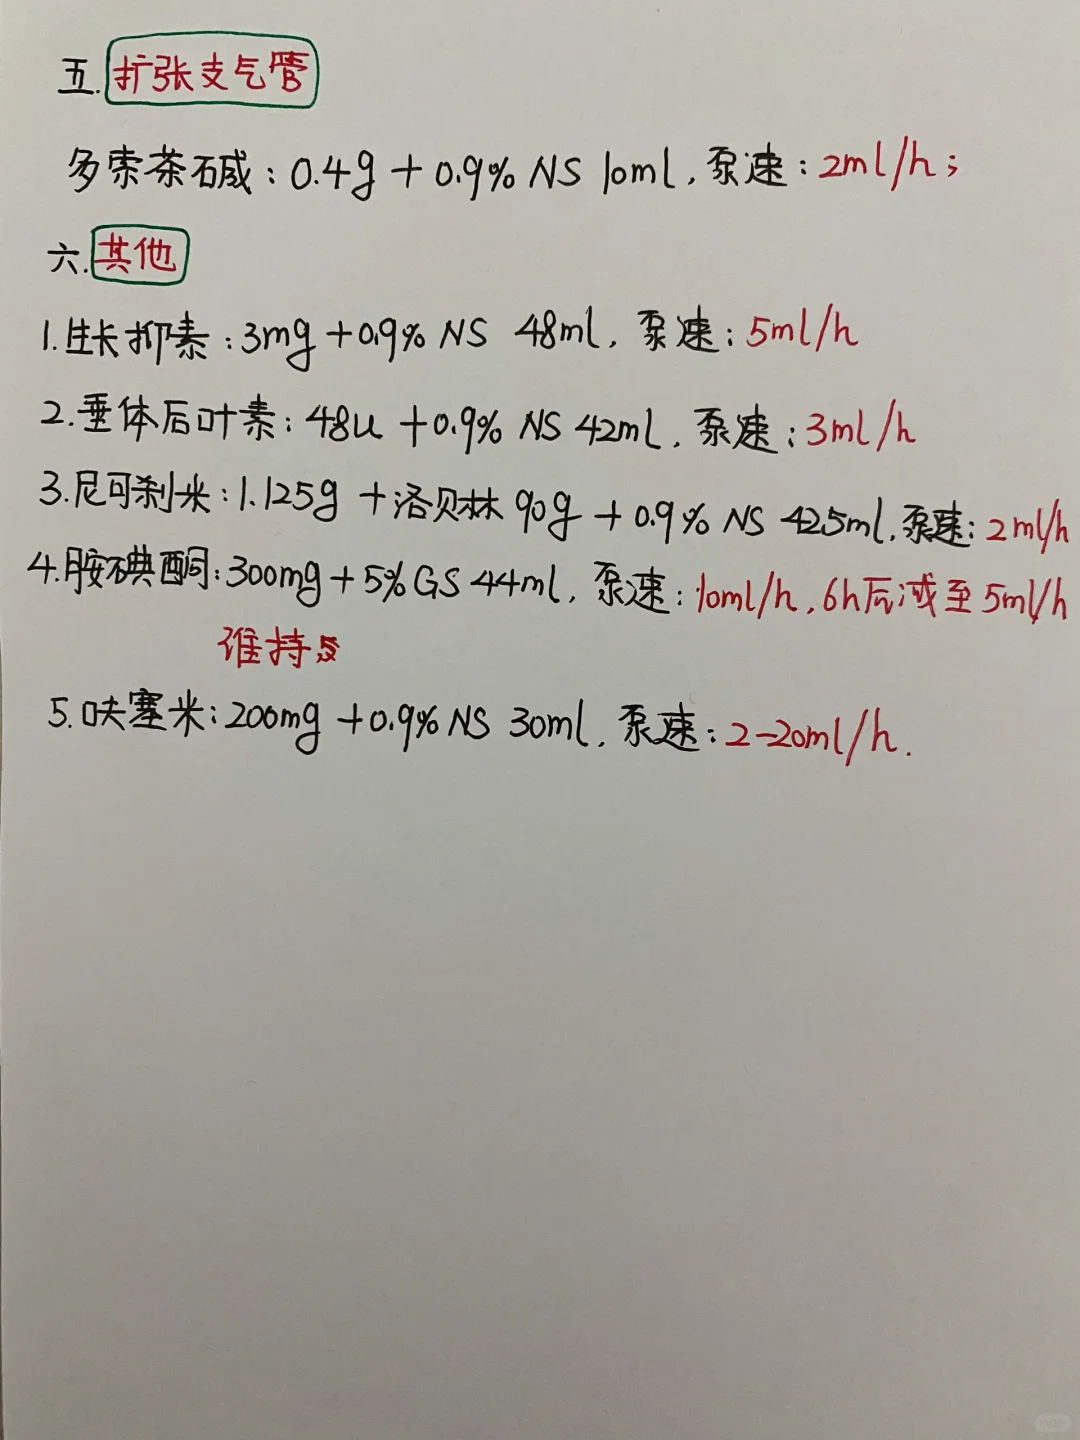 五.扩张支气管
多索茶碱:0.4g+0.9% NS 10ml,泵速:2ml/h;
六.其他
1.生长抑素:3mg+0.9% NS 48ml,泵速:5ml/h
2.垂体后叶素:48u+0.9% NS 42ml,泵速:3ml/h
3.尼可刹米:1.125g+洛贝林90g+0.9% NS 42.5ml,泵速:2ml/h
4.胺碘酮:300mg+5%GS 44ml,泵速:10ml/h,6h后减至5ml/h
维持
5.呋塞米:200mg+0.9% NS 30ml,泵速:2-20ml/h.